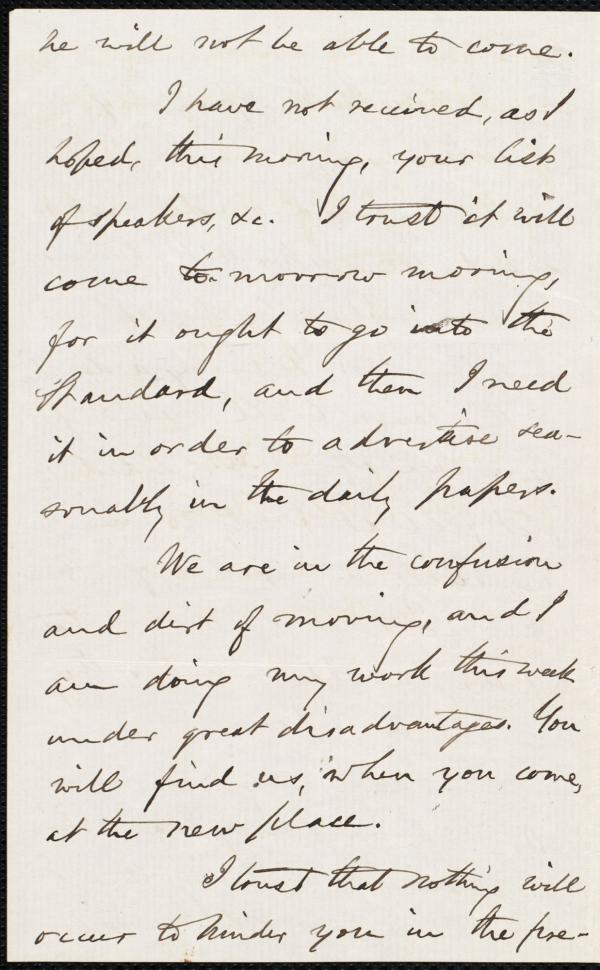 he will not be able to come.
I have not received, as I
hoped, this morning, your list
of speakers, &c. I trust it will
come to-morrow morning,
for it ought to go into the
Standard, and then I need
it in order to advertise sea-
sonably in the daily papers.
We are in the confusion
and dirt of moving, and I
am doing my work this week
under great disadvantages. You
will find us, when you come,
at the new place.
I trust that nothing will
occur to hinder you in the pre-